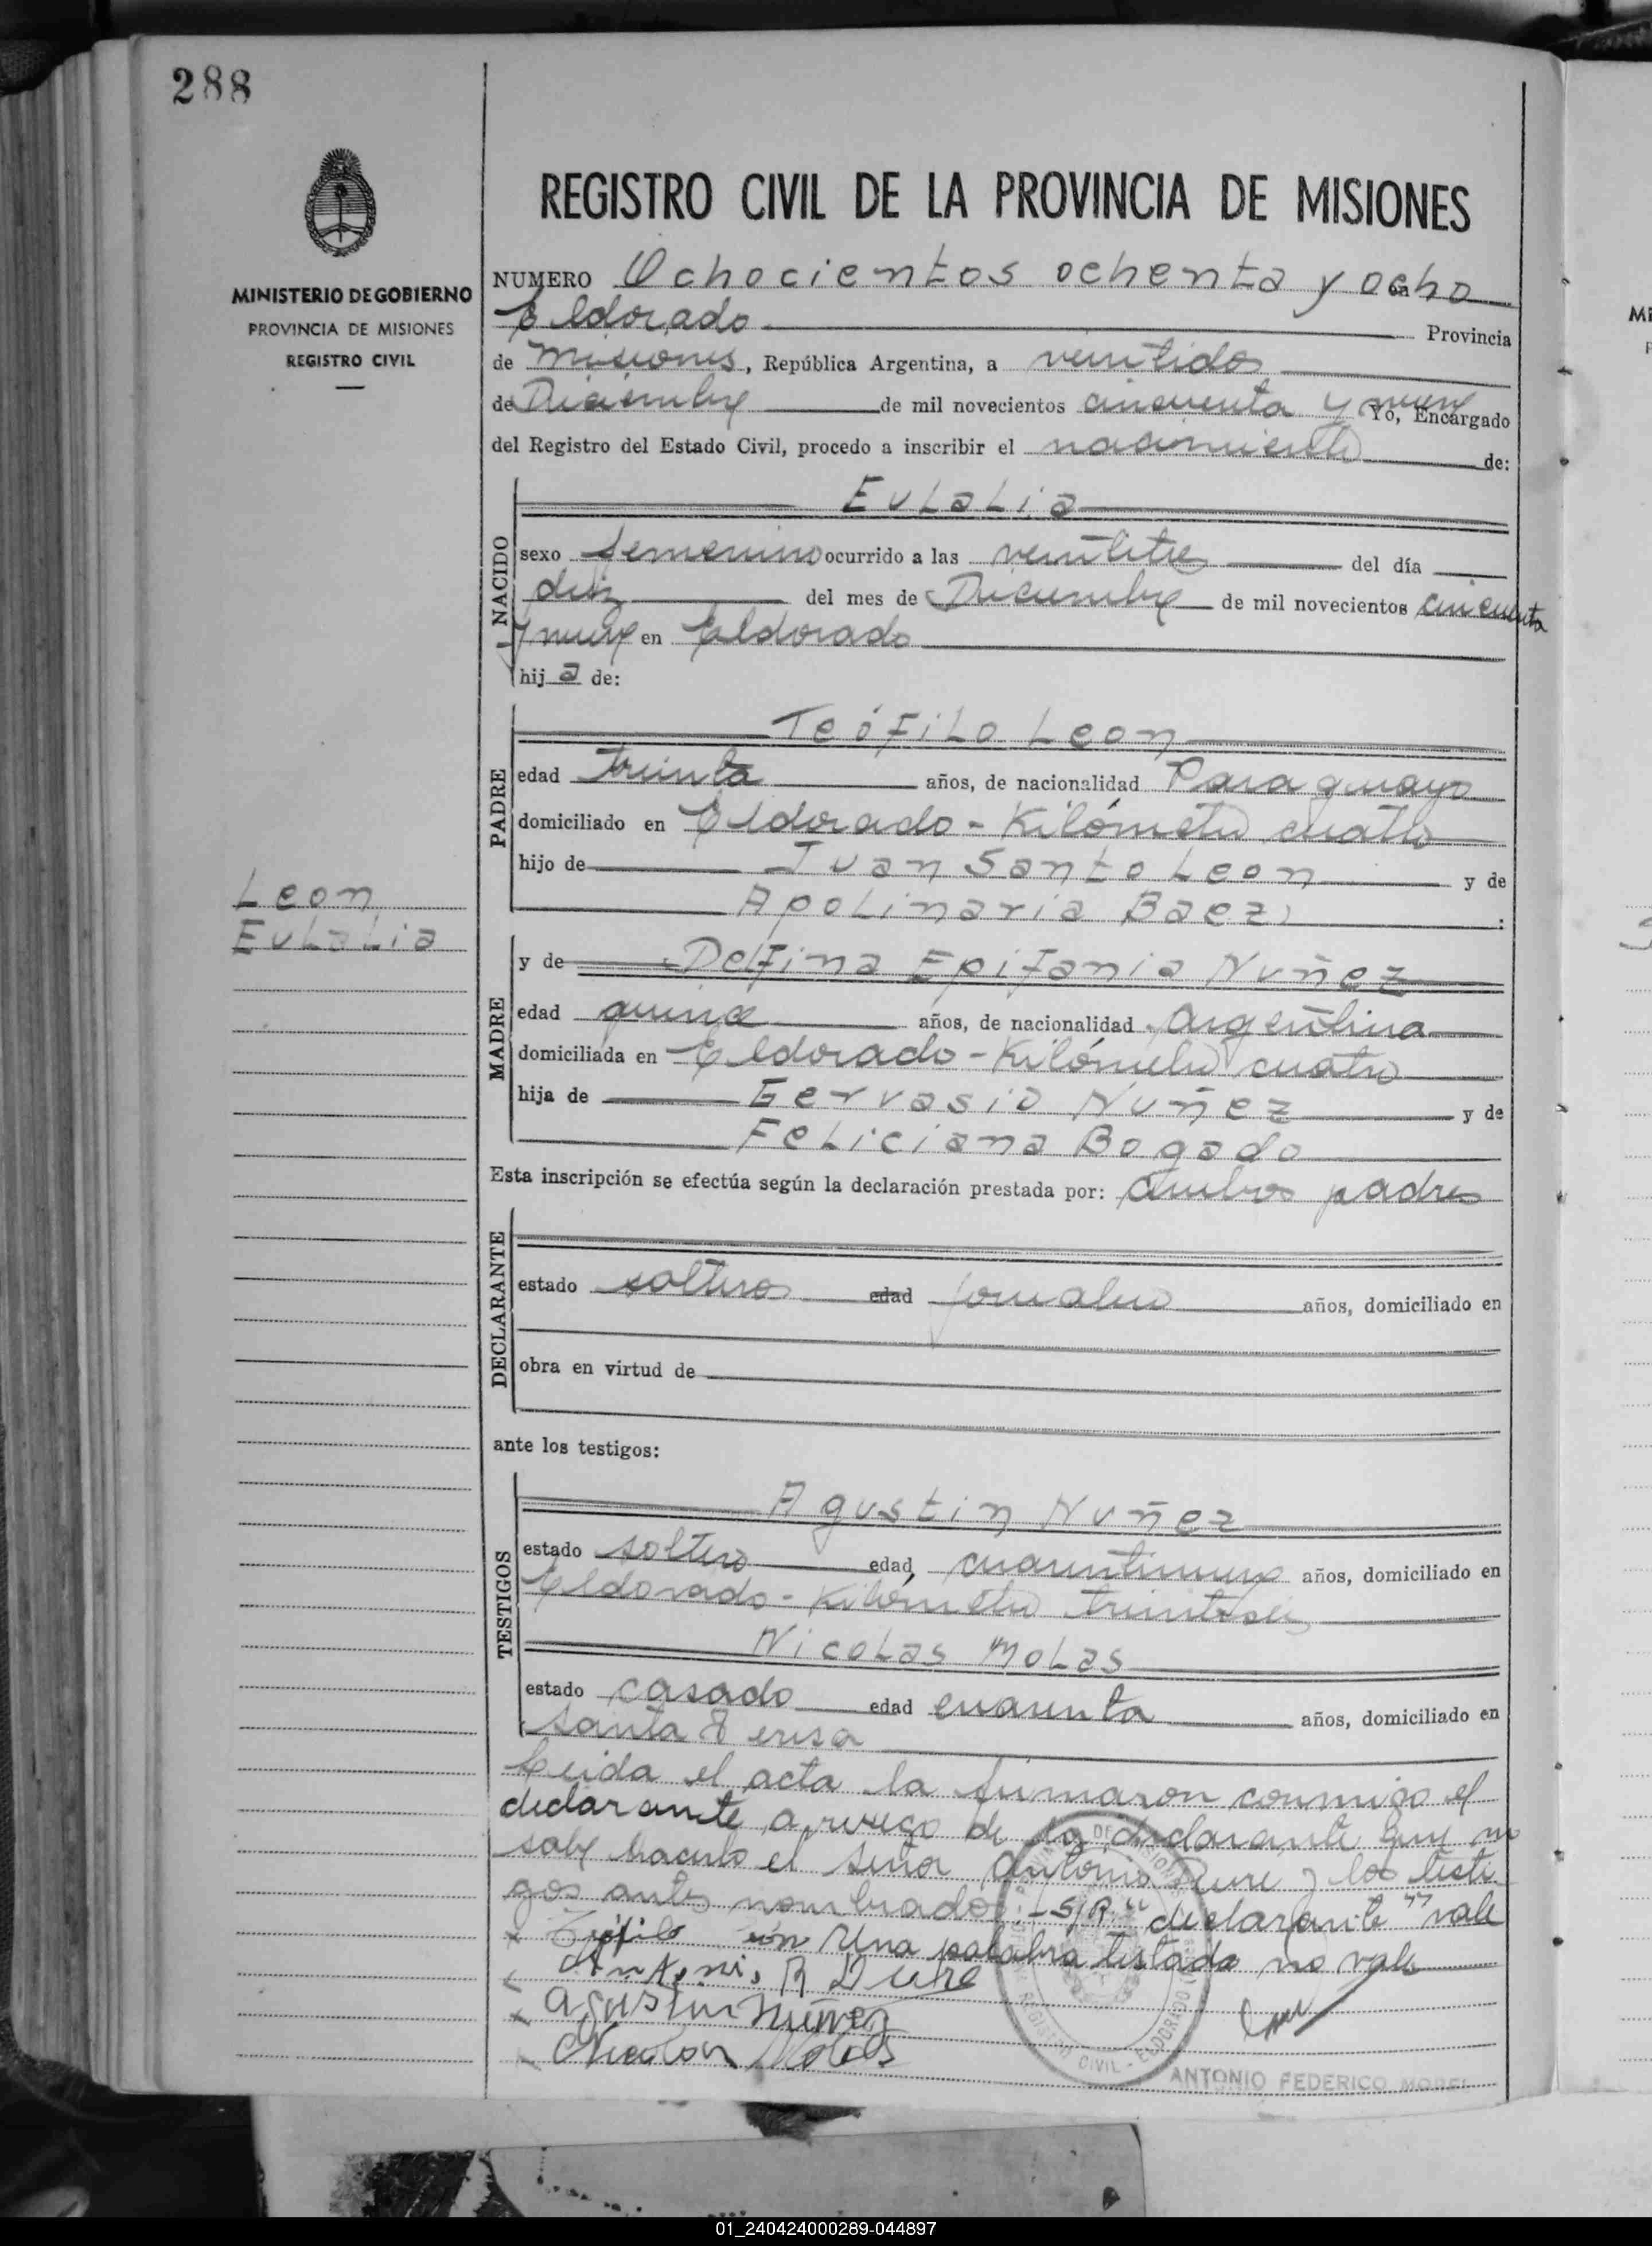 288
MINISTERIO DE GOBIERNO
PROVINCIA DE MISIONES
REGISTRO CIVIL
REGISTRO CIVIL DE LA PROVINCIA DE MISIONES
NUMERO Ochocientos ochenta y ocho en
Eldorado Provincia
de Misiones, República Argentina, a veintidos
de Diciembre de mil novecientos cincuenta y nueve Yo, Encargado
del Registro del Estado Civil, procedo a inscribir el nacimiento de:
NACIDO
Eulalia
sexo femenino ocurrido a las veintitres del día
diez del mes de Diciembre de mil novecientos cincuenta
y nueve en Eldorado
hij a de:
PADRE
Teófilo Leon
edad treinta años, de nacionalidad Paraguayo
domiciliado en Eldorado - Kilómetro cuatro
hijo de Juan Santo Leon y de
Apolinaria Baez :
Leon
Eulalia
MADRE
y de Delfina Epifania Nuñez
edad quince años, de nacionalidad Argentina
domiciliada en Eldorado - Kilómetro cuatro
hija de Gervasio Nuñez y de
Feliciana Bogado
Esta inscripción se efectúa según la declaración prestada por: ambos padres
DECLARANTE
estado solteros edad jornalero años, domiciliado en
obra en virtud de
ante los testigos:
TESTIGOS
Agustin Nuñez
estado soltero edad cuarentinueve años, domiciliado en
Eldorado - Kilómetro treintiseis
Nicolas Molas
estado casado edad cuarenta años, domiciliado en
Santa Teresa
Leida el acta la firmaron conmigo el
declarante a ruego de la declarante que no
sabe hacerlo el señor Antonio Dure y los testi
gos antes nombrados: - S/R. "declarante" vale
Teófilo Una palabra testado no vale
Antonio R Dure
Agustin Nuñez
Nicolas Molas
PROVINCIA DE MISIONES
REGISTRO CIVIL - ELDORADO
ANTONIO FEDERICO MOREL
01_240424000289-044897